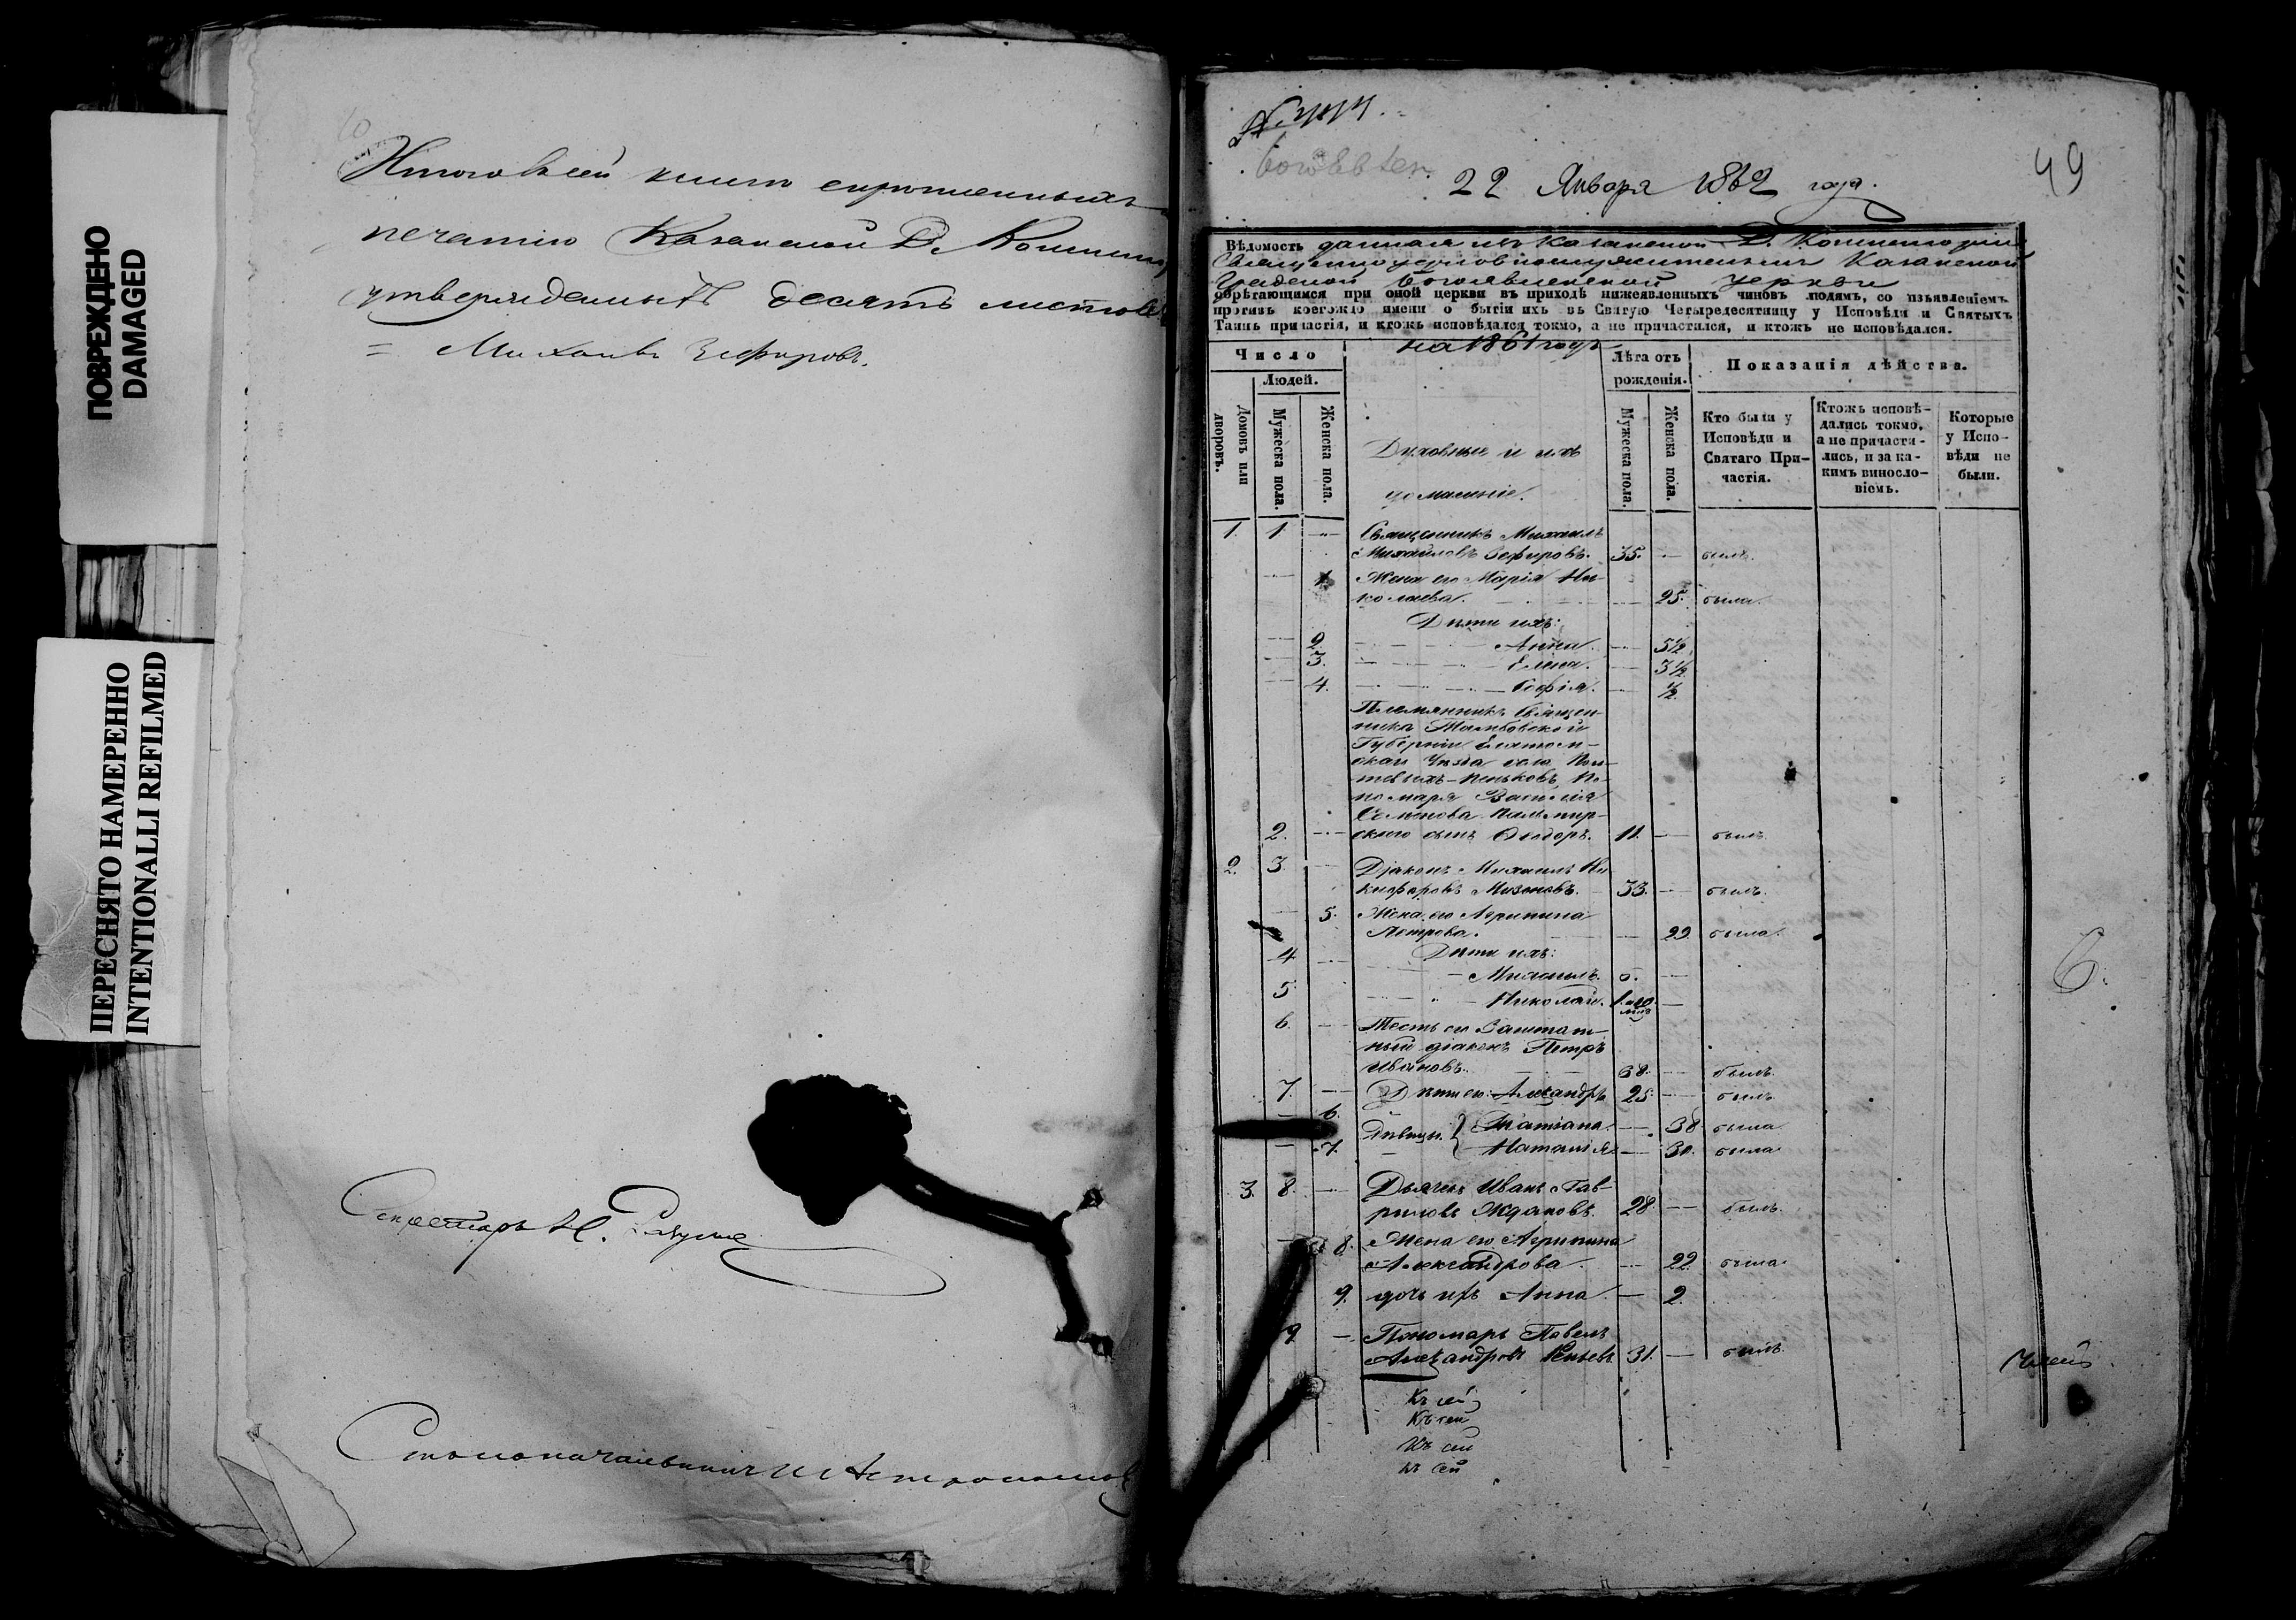 ПОВРЕЖДЕНО
DAMAGED
ПЕРЕСНЯТО НАМЕРЕННО
INTENTIONALLI REFILMED
Итого въ сей книге
печатию Казанской Д.
утвержденныхъ десять листовъ
= Михаилъ Зефировъ.
Секретарь Н.
Столоначальникъ
49
22 Января 1862 года.
Вѣдомость данная изъ Казанской Д. Консисторіи
Священноцерковнослужителямъ Казанской
Градской Богоявленской церкви
обрѣтающимся при оной церкви въ приходѣ нижеявленныхъ чиновъ людямъ, со изъявленіемъ
противъ коегождо имени о бытіи ихъ въ Святую Четыредесятницу у Исповѣди и Святыхъ
Таинъ причастія, и ктожъ исповѣдался токмо, а не причастился, и ктожъ не исповѣдался.
на 1861 годъ
Число
Людей.
Домовъ или дворовъ.
Мужеска пола.
Женска пола.
Духовные и ихъ
домашніе.
Лѣта отъ
рожденія.
Мужеска пола.
Женска пола.
Показанія дѣйства.
Кто были у
Исповѣди и
Святаго При-
частія.
Ктожъ исповѣ-
дались токмо,
а не причасти-
лись, и за ка-
кимъ винословіемъ.
Которые
у Испо-
вѣди не
были.
1. 1. — Священникъ Михаилъ
Михайловъ Зефировъ. 35. — былъ.
1. Жена его Марія Ни-
колаева. — 25. была.
Дѣти ихъ:
2. Анна. — 5½
3. Елена. — 3½
4. Софія. — ½
Племянникъ Священ-
ника Тамбовской
Губерніи Елатом-
скаго Уѣзда села
По-
номаря Василія
Семенова Пальмир-
2. — скаго сынъ Ѳеодоръ. 11. — былъ
2. 3. — Діаконъ Михаилъ Ни
кифоровъ Мизоновъ. 33. — былъ.
5. Жена его Агрипина
Петрова. — 29. была.
Дѣти ихъ:
4 — Михаилъ. —
5 — Николай. —
6. — Тесть его Заштат-
ный діаконъ Петръ
Ивановъ. 68. — былъ.
7. — Дѣти его: Александръ 25. — былъ
6. Дѣвицы { Татіана. — 38. была
7. Наталія — 30. была
3. 8. — Дьячекъ Иванъ Гав-
риловъ Ждановъ. 28. — былъ.
8. Жена его Агрипина
Александрова. — 22. была.
9. дочь ихъ Анна. — 2.
9 — Пономарь Павелъ
Александровъ 31. — былъ
6.
Къ сей
Къ сей
Къ сей
Къ сей